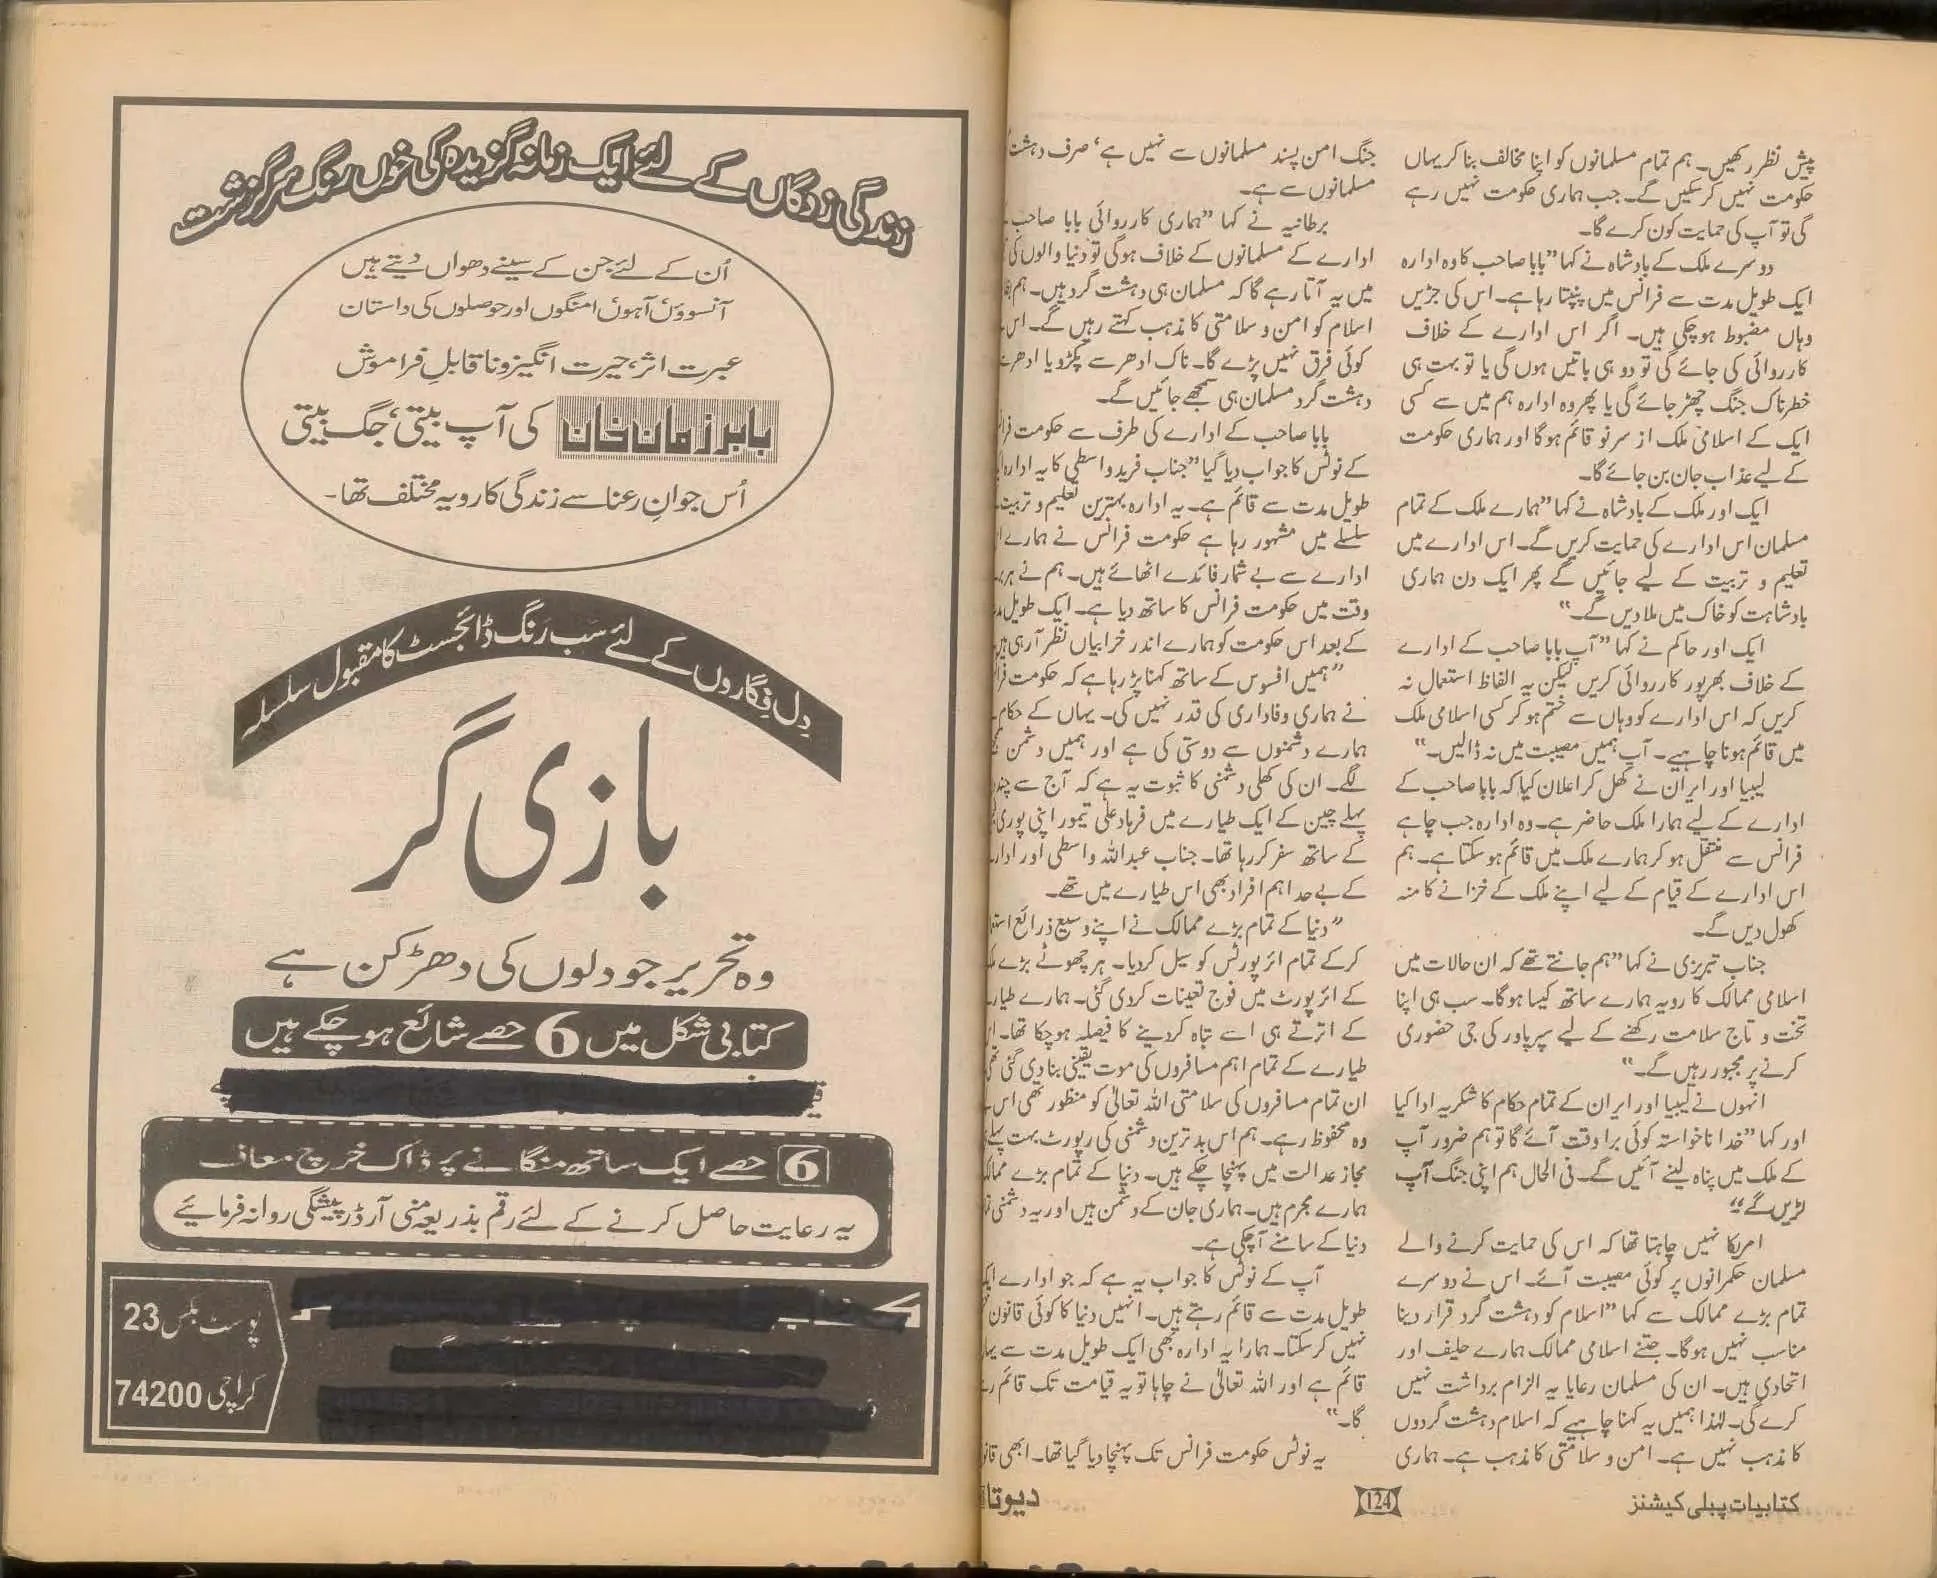 پیش نظر رکھیں۔ ہم تمام مسلمانوں کو اپنا مخالف بنا کر یہاں
حکومت نہیں کر سکیں گے۔ جب ہماری حکومت نہیں رہے
گی تو آپ کی حمایت کون کرے گا۔
دوسرے ملک کے بادشاہ نے کہا ”بابا صاحب کا وہ ادارہ
ایک طویل مدت سے فرانس میں پنپتا رہا ہے۔ اس کی جڑیں
وہاں مضبوط ہو چکی ہیں۔ اگر اس ادارے کے خلاف
کارروائی کی جائے گی تو دو ہی باتیں ہوں گی یا تو بہت ہی
خطرناک جنگ چھڑ جائے گی یا پھر وہ ادارہ ہم میں سے کسی
ایک کے اسلامی ملک از سر نو قائم ہو گا اور ہماری حکومت
کے لیے عذاب جان بن جائے گا۔
ایک اور ملک کے بادشاہ نے کہا ”ہمارے ملک کے تمام
مسلمان اس ادارے کی حمایت کریں گے۔ اس ادارے میں
تعلیم و تربیت کے لیے جائیں گے پھر ایک دن ہماری
بادشاہت کو خاک میں ملا دیں گے۔“
ایک اور حاکم نے کہا ”آپ بابا صاحب کے ادارے
کے خلاف بھرپور کارروائی کریں لیکن یہ الفاظ استعمال نہ
کریں کہ اس ادارے کو وہاں سے ختم ہو کر کسی اسلامی ملک
میں قائم ہونا چاہیے۔ آپ ہمیں مصیبت میں نہ ڈالیں۔“
لیبیا اور ایران نے کھل کر اعلان کیا کہ بابا صاحب کے
ادارے کے لیے ہمارا ملک حاضر ہے۔ وہ ادارہ جب چاہے
فرانس سے منتقل ہو کر ہمارے ملک میں قائم ہو سکتا ہے۔ ہم
اس ادارے کے قیام کے لیے اپنے ملک کے خزانے کا منہ
کھول دیں گے۔
جناب تبریزی نے کہا ”ہم جانتے تھے کہ ان حالات میں
اسلامی ممالک کا رویہ ہمارے ساتھ کیسا ہوگا۔ سب ہی اپنا
تخت و تاج سلامت رکھنے کے لیے سپر پاور کی جی حضوری
کرنے پر مجبور رہیں گے۔“
انہوں نے لیبیا اور ایران کے تمام حکام کا شکریہ ادا کیا
اور کہا ”خدا ناخواستہ کوئی برا وقت آئے گا تو ہم ضرور آپ
کے ملک میں پناہ لینے آئیں گے۔ فی الحال ہم اپنی جنگ آپ
لڑیں گے“
امریکا نہیں چاہتا تھا کہ اس کی حمایت کرنے والے
مسلمان حکمرانوں پر کوئی مصیبت آئے۔ اس نے دوسرے
تمام بڑے ممالک سے کہا ”اسلام کو دہشت گرد قرار دینا
مناسب نہیں ہوگا۔ جتنے اسلامی ممالک ہمارے حلیف اور
اتحادی ہیں۔ ان کی مسلمان رعایا یہ الزام برداشت نہیں
کرے گی۔ لہٰذا ہمیں یہ کہنا چاہیے کہ اسلام دہشت گردوں
کا مذہب نہیں ہے۔ امن و سلامتی کا مذہب ہے۔ ہماری
جنگ امن پسند مسلمانوں سے نہیں ہے‘ صرف دہشت
مسلمانوں سے ہے۔
برطانیہ نے کہا ”ہماری کارروائی بابا صاحب
ادارے کے مسلمانوں کے خلاف ہوگی تو دنیا والوں کی
میں یہ آتا رہے گا کہ مسلمان ہی دہشت گرد ہیں۔ ہم
اسلام کو امن و سلامتی کا مذہب کہتے رہیں گے۔ اس
کوئی فرق نہیں پڑے گا۔ ناک ادھر سے پکڑو یا ادھر
دہشت گرد مسلمان ہی سمجھے جائیں گے۔
بابا صاحب کے ادارے کی طرف سے حکومت
کے نوٹس کا جواب دیا گیا ”جناب فرید واسطی کا یہ ادارہ
طویل مدت سے قائم ہے۔ یہ ادارہ بہترین تعلیم و تربیت
سلسلے میں مشہور رہا ہے حکومت فرانس نے ہمارے
ادارے سے بے شمار فائدے اٹھائے ہیں۔ ہم نے
وقت میں حکومت فرانس کا ساتھ دیا ہے۔ ایک طویل
کے بعد اس حکومت کو ہمارے اندر خرابیاں نظر آ رہی
”ہمیں افسوس کے ساتھ کہنا پڑ رہا ہے کہ حکومت
نے ہماری وفاداری کی قدر نہیں کی۔ یہاں کے حکام
ہمارے دشمنوں سے دوستی کی ہے اور ہمیں دشمن
لگے۔ ان کی کھلی دشمنی کا ثبوت یہ ہے کہ آج سے
پہلے چین کے ایک طیارے میں فرہاد علی تیمور اپنی پوری
کے ساتھ سفر کر رہا تھا۔ جناب عبداللہ واسطی اور
کے بے حد اہم افراد بھی اس طیارے میں تھے۔
”دنیا کے تمام بڑے ممالک نے اپنے وسیع ذرائع
کرکے تمام ائرپورٹس کو سیل کردیا۔ ہر چھوٹے بڑے
کے ائرپورٹ میں فوج تعینات کردی گئی۔ ہمارے
کے اترتے ہی اسے تباہ کردینے کا فیصلہ ہو چکا تھا۔
طیارے کے تمام اہم مسافروں کی موت یقینی بنادی گئی
ان تمام مسافروں کی سلامتی اللہ تعالیٰ کو منظور تھی اس
وہ محفوظ رہے۔ ہم اس بدترین دشمنی کی رپورٹ بہت پہلے
مجاز عدالت میں پہنچا چکے ہیں۔ دنیا کے تمام بڑے
ہمارے مجرم ہیں۔ ہماری جان کے دشمن ہیں اور یہ دشمنی
دنیا کے سامنے آ چکی ہے۔
آپ کے نوٹس کا جواب یہ ہے کہ جو ادارے
طویل مدت سے قائم رہتے ہیں۔ انہیں دنیا کا کوئی قانون
نہیں کر سکتا۔ ہمارا یہ ادارہ بھی ایک طویل مدت سے
قائم ہے اور اللہ تعالیٰ نے چاہا تو یہ قیامت تک قائم
گا۔“
یہ نوٹس حکومت فرانس تک پہنچا دیا گیا تھا۔ ابھی
کتابیات پبلی کیشنز
124
دیوتا
زندگی زدگاں کے لئے ایک زمانہ گزیدہ کی خوں رنگ سرگزشت
اُن کے لئے جن کے سینے دھواں دیتے ہیں
آنسوؤں‘ آہوں‘ امنگوں اور حوصلوں کی داستان
عبرت اثر، حیرت انگیز و ناقابلِ فراموش
بابر زمان خان کی آپ بیتی، جگ بیتی
اُس جوانِ رعنا سے زندگی کا رویہ مختلف تھا۔
دِل فِگاروں کے لئے سَب رَنگ ڈائجسٹ کا مقبول سلسلہ
بازی گر
وہ تحریر جو دلوں کی دھڑکن ہے
کتابی شکل میں 6 حصے شائع ہو چکے ہیں
6 حصے ایک ساتھ منگانے پر ڈاک خرچ معاف
یہ رعایت حاصل کرنے کے لئے رقم بذریعہ منی آرڈر پیشگی روانہ فرمائیے
پوسٹ بکس 23
کراچی 74200